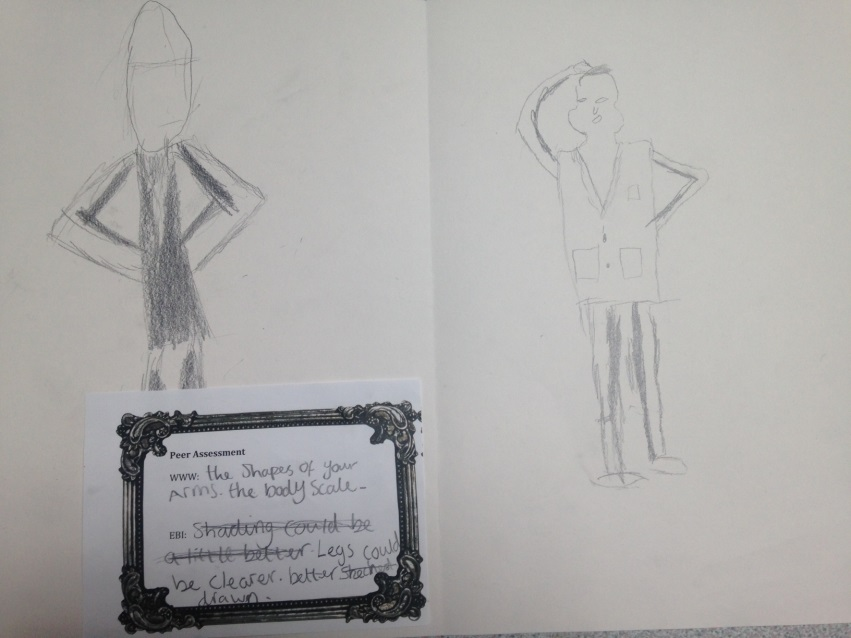 Peer Assessment
WWW: the Shapes of your
Arms. the body Scale-
EBI: Shading could be
a little better. Legs could
be clearer. better
drawn.